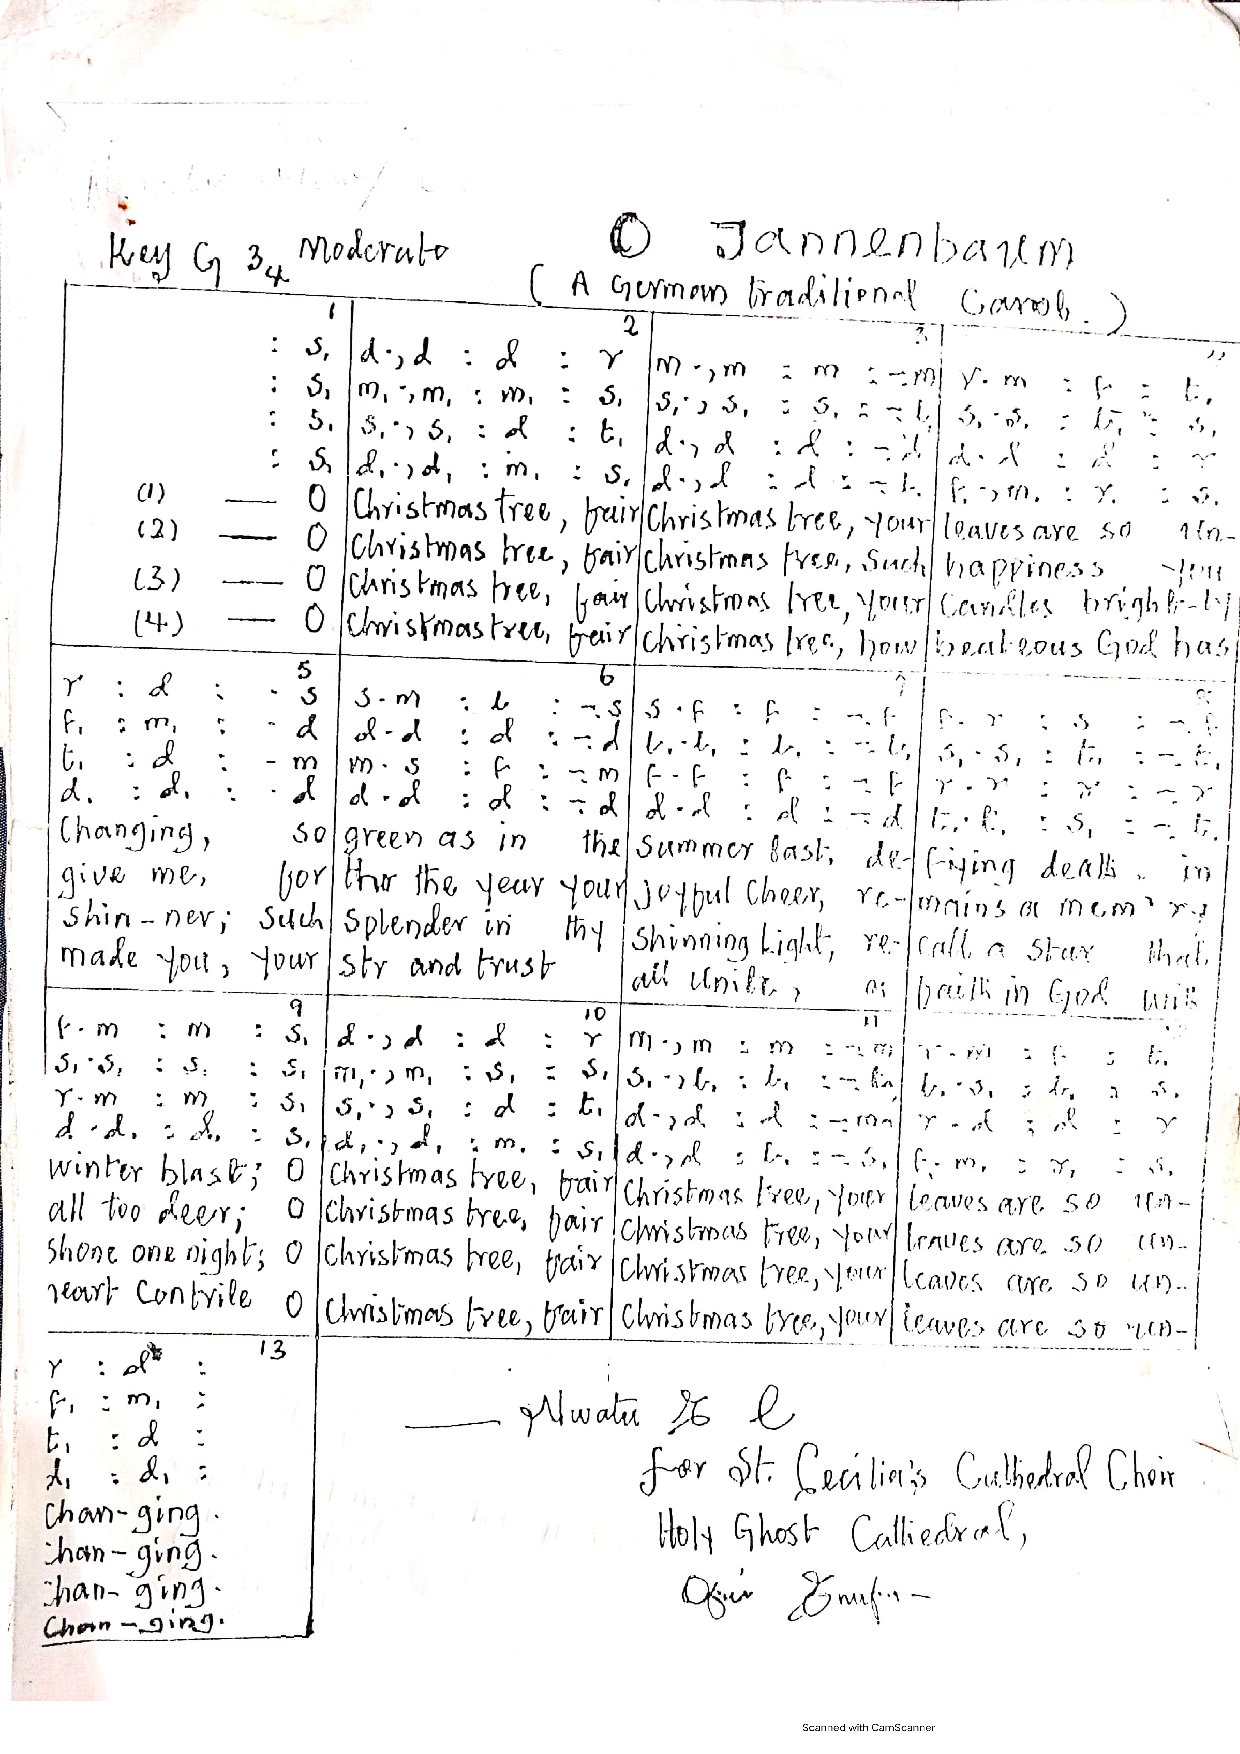 Key G 3 4 Moderato
O Tannenbaum
( A German traditional Carol. )
1 2 3
: s, | d ., d : d : r | m ., m : m : - . m | r . m : f : t,
: s, | m, ., m, : m, : s, | s, ., s, : s, : - . l, | s, . s, : t, : s,
: s, | s, ., s, : d : t, | d ., d : d : - . d | d . d : d : r
: s, | d, ., d, : m, : s, | d ., d : d : - . l, | f, ., m, : r, : s,
(1) — O | Christmas tree, fair | Christmas tree, your | leaves are so un-
(2) — O | Christmas tree, fair | Christmas tree, Such | happiness you
(3) — O | Christmas tree, fair | Christmas tree, your | Candles bright-ly
(4) — O | Christmas tree, fair | Christmas tree, how | beateous God has
5 6 7 8
r : d : - s | s . m : l : - . s | s . f : f : - . f | f . r : s : - . f
f, : m, : - d | d . d : d : - . d | l, . l, : l, : - . l, | s, . s, : t, : - . t,
t, : d : - m | m . s : f : - . m | f . f : f : - . f | r . r : r : - . r
d, : d, : - d | d . d : d : - . d | d . d : d : - . d | t, . t, : s, : - . t,
Changing, so | green as in the | Summer last, de- | fying death in
give me, for | thro the year your | Joyful Cheer, re- | mains a mem'ry
Shin-ner; Such | Splender in thy | Shinning Light, re- | call a Star that
made you, your | Str and trust | all Unite, as | faith in God with
9 10 11
f . m : m : s, | d ., d : d : r | m ., m : m : - . m | r . m : f : t,
s, . s, : s, : s, | m, ., m, : s, : s, | s, ., l, : l, : - . | l, . s, : l, : s,
r . m : m : s, | s, ., s, : d : t, | d ., d : d : - . m | r . d : d : r
d . d, : d, : s, | d, ., d, : m, : s, | d ., d : l, : - . s, | f, . m, : r, : s,
winter blast; O | Christmas tree, fair | Christmas tree, your | leaves are so un-
all too deer; O | Christmas tree, fair | Christmas tree, your | leaves are so un-
Shone one night; O | Christmas tree, fair | Christmas tree, your | leaves are so un-
heart Contrile O | Christmas tree, fair | Christmas tree, your | leaves are so un-
13
r : d :
f, : m, :
t, : d :
d, : d, :
Chan-ging.
Chan-ging.
Chan-ging.
Chan-ging.
— Nwatu
for St. Cecilia's Cathedral Choir
Holy Ghost Cathedral,
Scanned with CamScanner